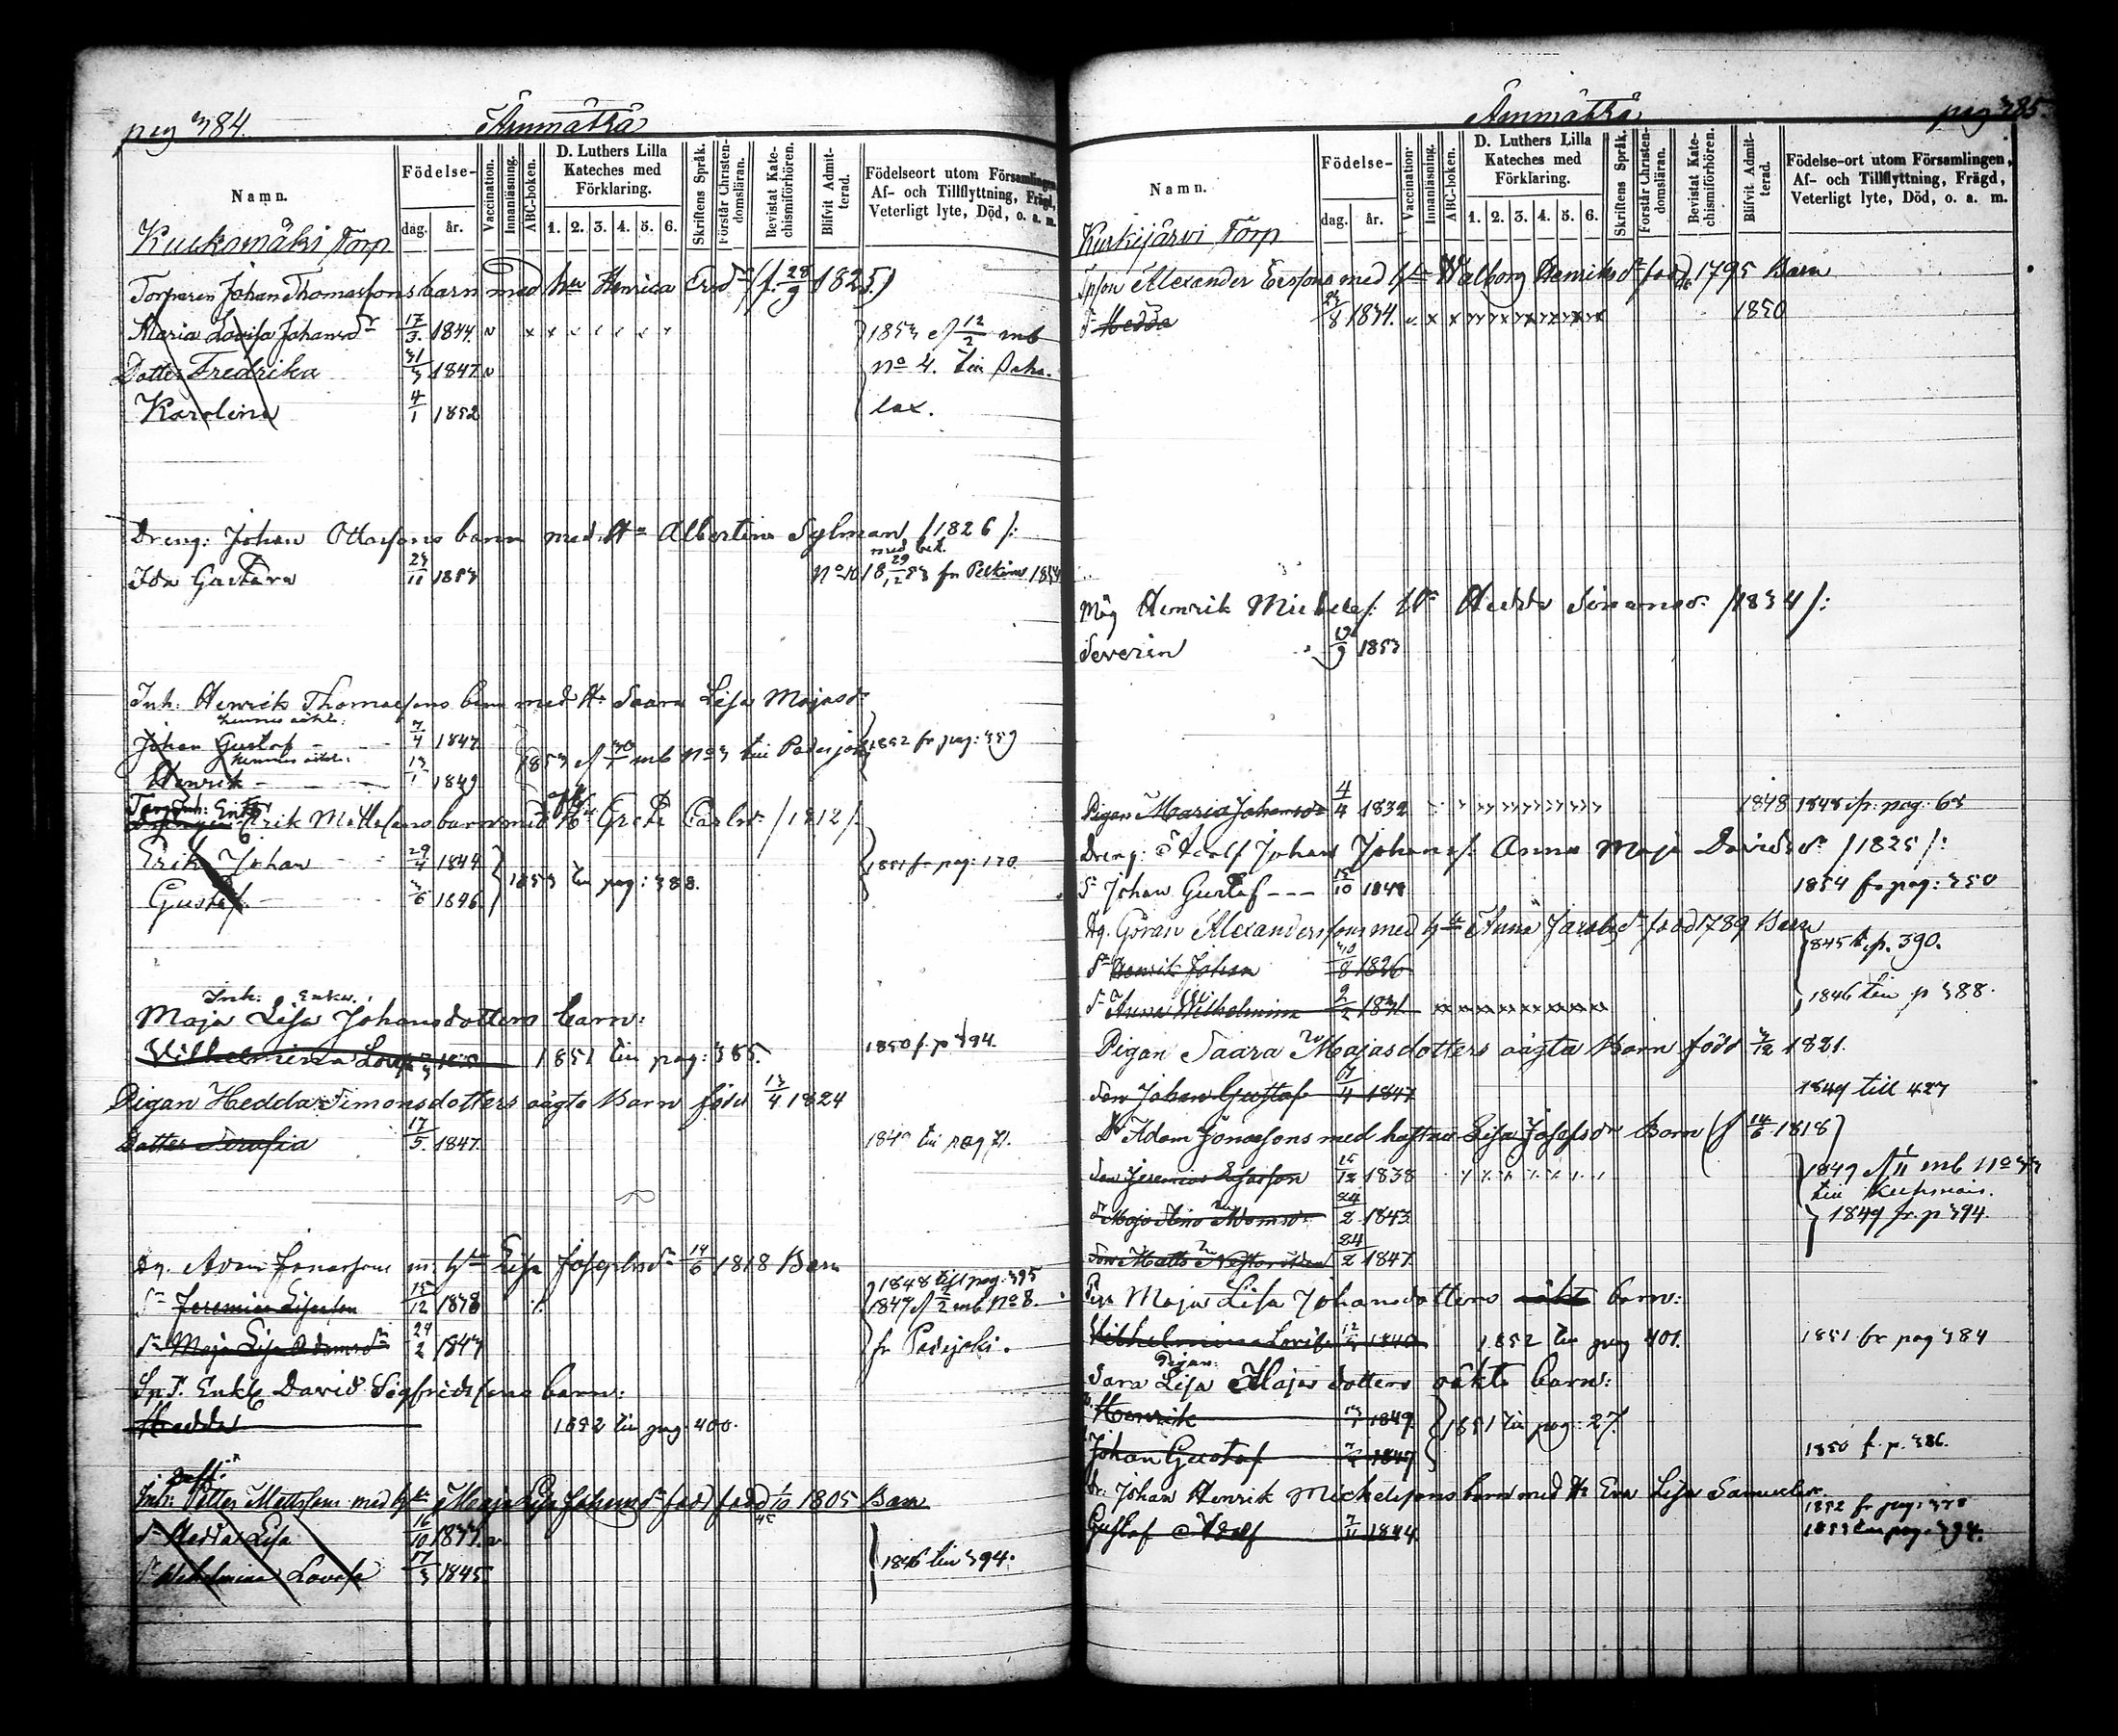 pag 384.
Ämmätkä
Namn.
Födelse-
dag. år.
Vaccination.
Innanläsning.
ABC-boken.
D. Luthers Lilla
Kateches med
Förklaring.
1. 2. 3. 4. 5. 6.
Skriftens Språk.
Förstår Christen-
domsläran.
Bevistat Kate-
chismiförhören.
Blifvit Admit-
terad.
Födelseort utom Församlingen,
Af- och Tillflyttning, Frägd,
Veterligt lyte, Död, o. a. m.
Kuckomäki Torp
Torparen Johan Thomassons barn med hu Henrica Ersdr (f. 28/9 1825)
Maria Lovisa Johansdr 17/3. 1844. 1853 af 12/2 mb
Dotter Fredrika 31/3 1847 No 4. till
Karolina 4/1 1852 lax.
Dreng: Johan Ottosons barn med H: Albertina Sylman /1826/:
Ida Gustava 23/11 1853 No 10 18 29/12 53 fr
Inh: Henrik Thomassons barn med H: Saara Lisa Majasdr
Johan Gustaf 7/4 1847 1852 fr pag: 359
Henrik 13/1 1849 1853 af mb No 3 till Padasjoki
Erik Mattssons barn med Greta Carlsdr /1812/
Erik Johan 29/4 1844 1851 fr pag: 120
Gustaf 3/6 1846 1853 till pag: 388.
Inh: Enkw.
Maja Lisa Johansdotters barn:
Vilhelmina Lovisa 1851 till pag: 385. 1850 f. p 394.
Pigan Hedda Simonsdotters oägta Barn född 13/4 1824
Dotter Serafia 17/5. 1847. till pag 71.
Dg. Adam Jonassons m. hu Lisa Josephsdr 14/6 1818 Barn
Sn Jeremias Lisasson 15/12 1838 1848 till pag. 395
1847 af 2/2 mb No 8.
Dr Maja Lisa Adamsdr 24/2 1843 fr Padasjoki.
Enkl. David Sigfridssons barn:
Hedda 1852 till pag: 400.
Inh: Petter Mattssons med hu Maja Lisa Johansdr född 1/10 1805 Barn
Dr Hedda Lisa 16/10 1843.
Dr Wilhelmina Lovisa 17/3 1845 1846 till 394.
Ämmätkä
pag 385.
Namn.
Födelse-
dag. år.
Vaccination.
Innanläsning.
ABC-boken.
D. Luthers Lilla
Kateches med
Förklaring.
1. 2. 3. 4. 5. 6.
Skriftens Språk.
Förstår Christen-
domsläran.
Bevistat Kate-
chismiförhören.
Blifvit Admit-
terad.
Födelse-ort utom Församlingen,
Af- och Tillflyttning, Frägd,
Veterligt lyte, Död, o. a. m.
Kurkijärvi Torp
Alexander Erssons med hu Walborg Henriksdr född 1795 Barn
Dr Hedda 1834. 1850
Måg Henrik Michelss: H: Hedda Simonsdr /1834/:
Severin 1853
Pigan Maria Johansdr 4/4 1832 1848 1848 fr. pag: 63
Dreng: Adolf Johan Johanss: Anna Maja Davidsdr /1825/:
Sn Johan Gustaf 15/10 1848 1854 fr pag: 350
Dg. Göran Alexanderssons med hu Anna Jacobsdr född 1789 Barn
Sn Henrik Johan 30/8 1826 1845 t. p. 390.
Dr Anna Wilhelmina 9/2 1831 1846 till p 388.
Pigan Saara Majasdotters oägta Barn född 3/12 1821.
Son Johan Gustaf 7/4 1847 1849 till 427
Dr Adam Jonassons med hustru Lisa Josefsdr Barn (f 14/6 1818
Son Jeremias Lisasson 15/12 1838 1847 af mb No 33
till
Dr Maja Stina Adamsdr 24/2 1843 1849 fr. p 394.
Son Matts Nestor 24/2 1847
Maja Lisa Johansdotters oäkta barn:
Vilhelmina Lovisa 1840 1852 till pag 401. 1851 fr pag 384
Pigan:
Sara Lisa Majasdotters oäkta barn:
Henrik 13/1 1849 1851 till pag: 27.
Johan Gustaf 7/4 1847 1850 f. p. 386.
Dr. Johan Henrik Michelssons barn med H: Eva Lisa Samuelsdr
1852 fr pag: 378
Gustaf Adolf 7/11 1844 1853 till pag: 394.